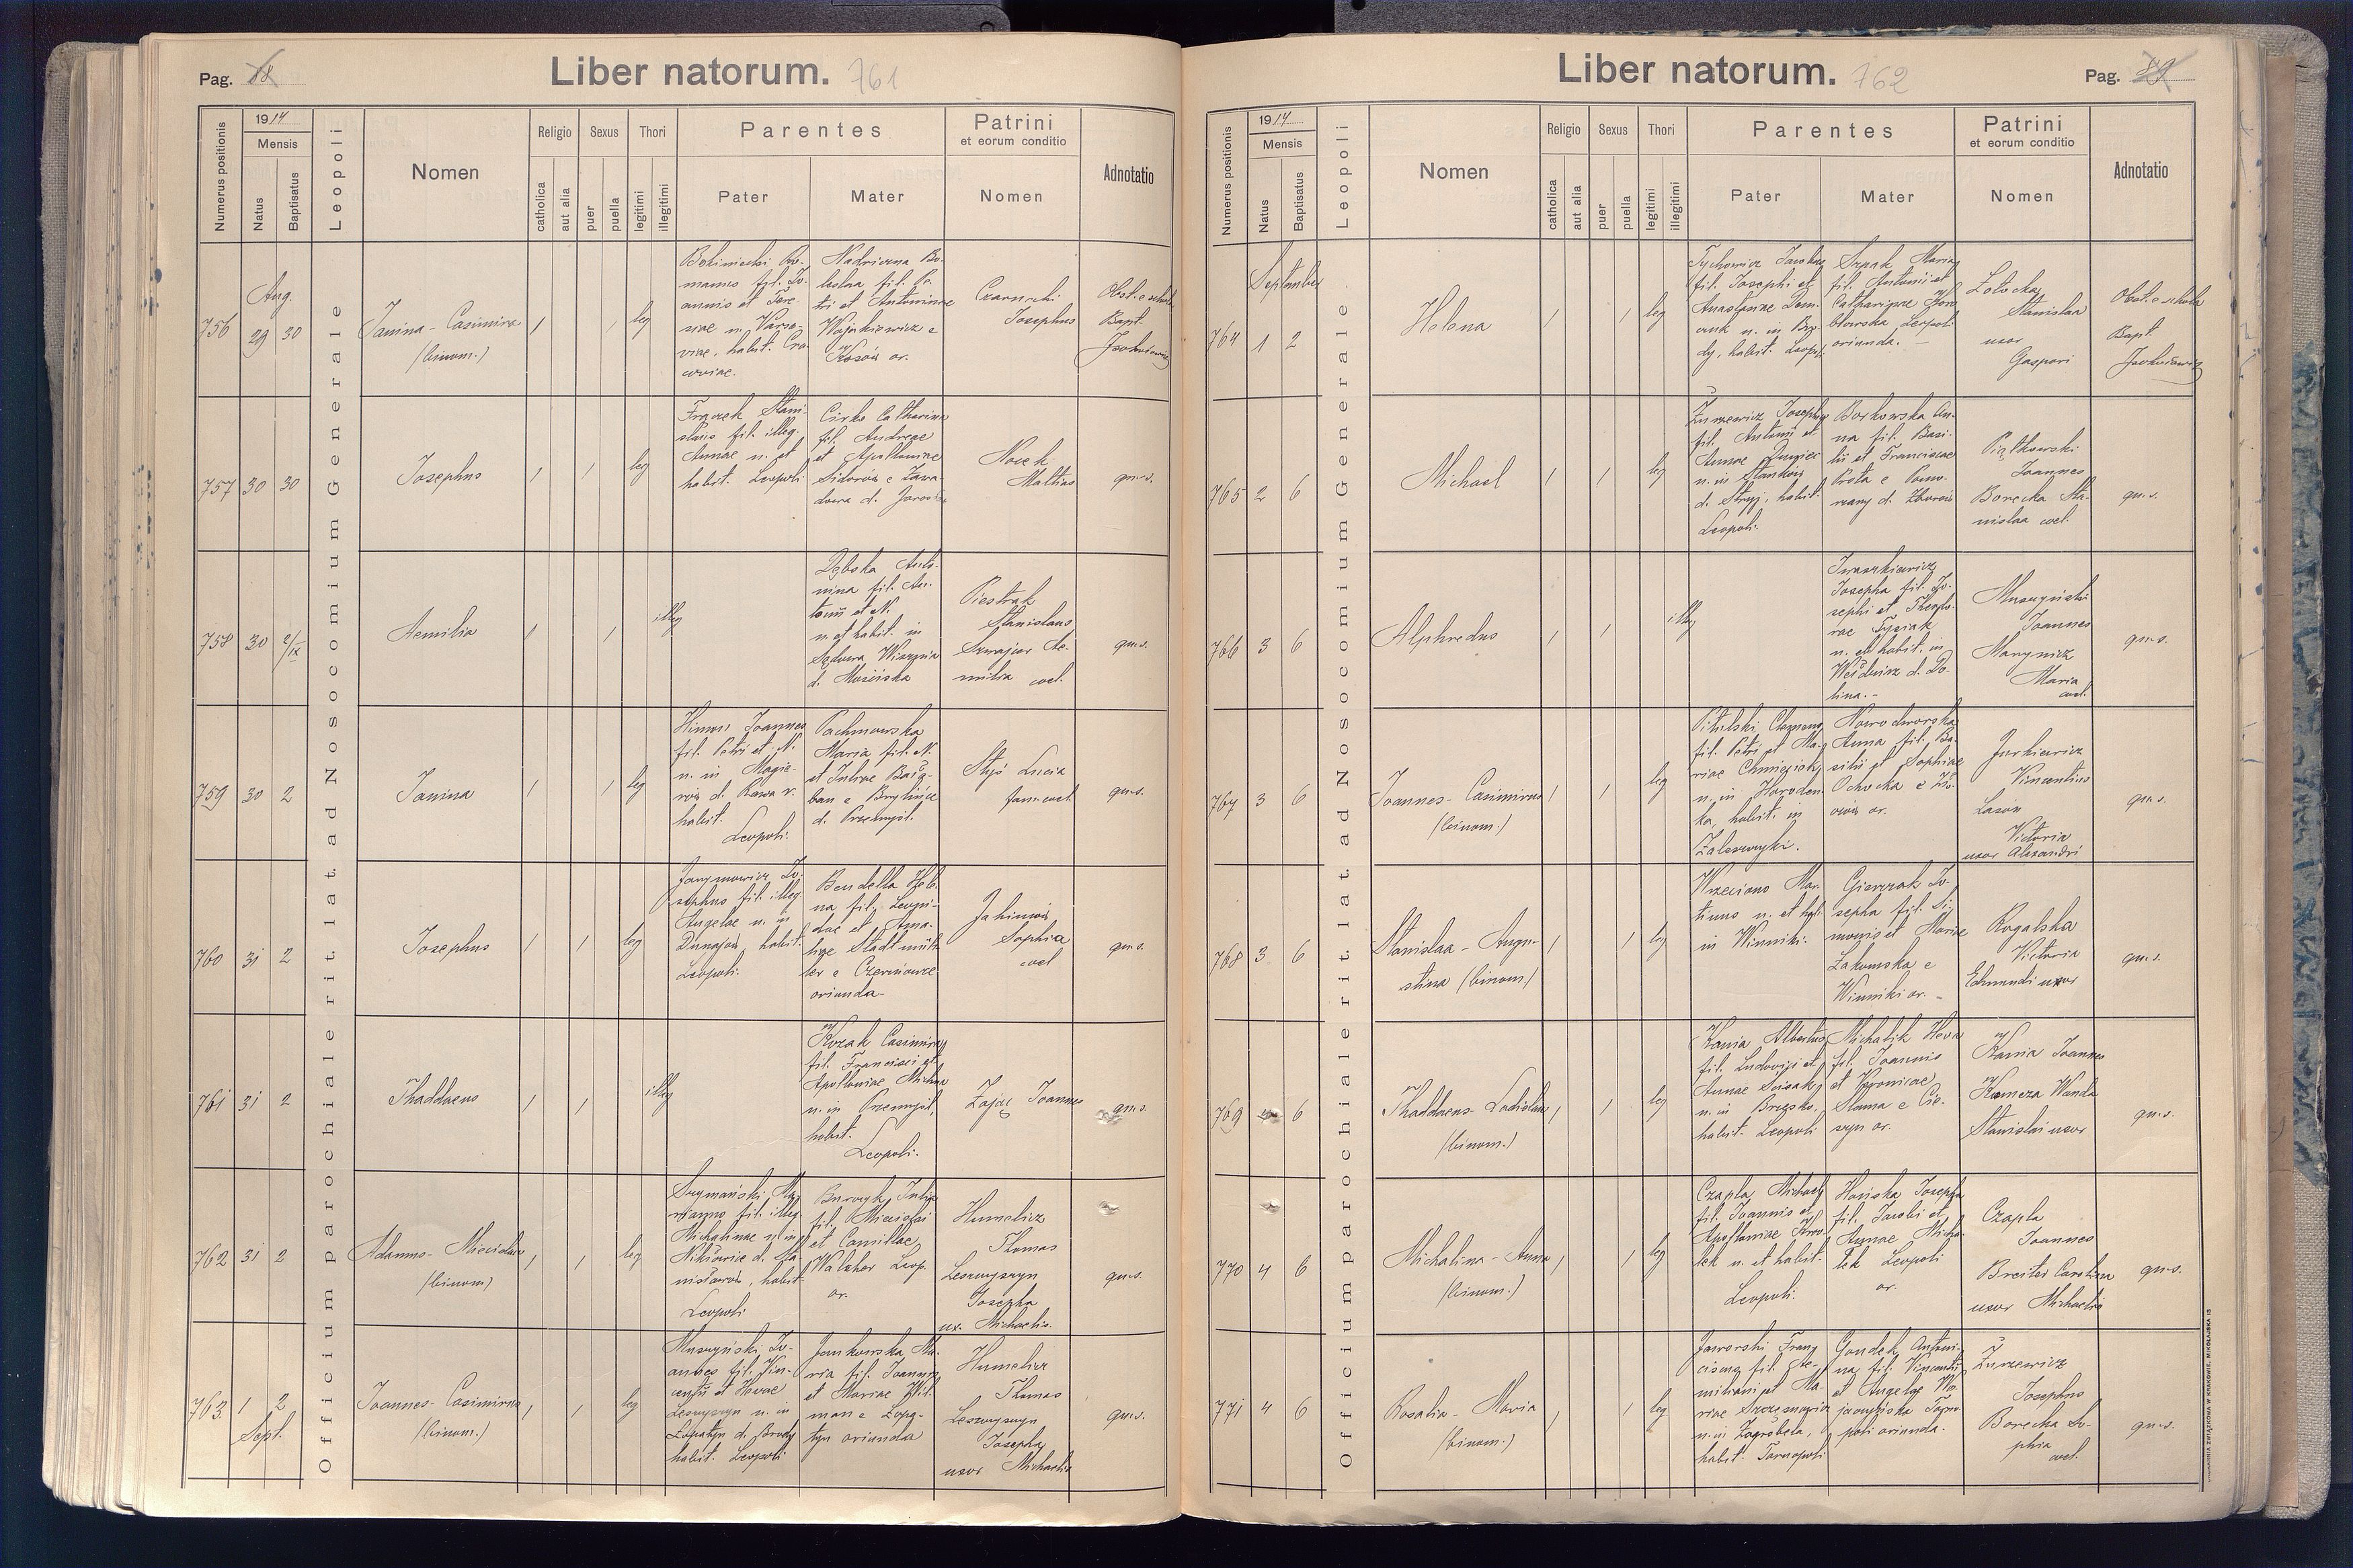 Pag. 88
Liber natorum. 761
Numerus positionis
1914
Mensis
Natus
Baptisatus
Leopoli
Nomen
Religio
catholica
aut alia
Sexus
puer
puella
Thori
legitimi
illegitimi
Parentes
Pater
Mater
Patrini
et eorum conditio
Nomen
Adnotatio
Officium parochiale rit. lat. ad Nosocomium Generale
756
Aug.
29 30
Janina - Casimira
(binom.)
leg
manus fil. Jo-
annis et There-
siae n. Varso-
viae, habit. Cra-
coviae.
leslaa fil. Pe-
tri et Antoninae
Wojnkiewicz e
Kosów or.
Josephus
Obst. e schola
Bapt.
757 30 30
Josephus
leg
Stani-
slaus fil. illeg.
Annae n. et
habit. Leopoli
Cirko Catharina
fil. Andreae
et Apolloniae
Sidorów e Zawa-
dowa d. Jaworów
Nowak
qu. s.
758 30 2/IX
Aemilia
illeg
Dębska Anto-
nina fil. An-
tonii et N.
n. et habit. in
Sądowa Wisznia
d. Mościska
Piestrak
Stanislaus
Szwajcar Ae-
milia coel.
qu. s.
759 30 2
Janina
leg
Joannes
fil. Petri et N.
n. in Magie-
rów d. Rawa r.
habit.
Leopoli.
Pachmowska
Maria fil. N.
et Juliae
d. Przemyśl.
Lucia
fam. coel.
qu. s.
760 31 2
Josephus
leg
sephus fil. illeg.
Angelae n. in
Dunajów, habit.
Leopoli.
Bendella Hele-
na fil. Leoni-
dae et Ama-
liae Stadtmül-
ler e Czerniowce
orianda
Jakimów
Sophia
coel
qu. s.
761 31 2
Thaddaeus
illeg
Kozak Casimira
fil. Francisci et
Apolloniae
n. in Przemyśl,
habit.
Leopoli.
Zając Joannes
qu. s.
762 31 2
Adamus - Miecislaus
(binom)
leg
Szymański Ma-
rianus fil. illeg.
Michalinae n. in
d. Sta-
nisławów, habit.
Leopoli
Julia
fil. Miecislai
et Camillae
Walcher Leop.
or.
Humelicz
Thomas
Leszczyszyn
Josepha
ux. Michaelis.
qu. s.
763. 1 2
Sept.
Joannes - Casimirus
(binom.)
leg
Muszyński Jo-
annes fil. Vin-
centii et Hevae
Leszczyszyn n. in
Łopatyn d. Brody
habit. Leopoli
Jankowska Ma-
ria fil. Joannis
et Mariae Wit-
man e Łopa-
tyn orianda
Humelicz
Thomas
Leszczyszyn
Josepha
uxor Michaelis
qu. s.
Liber natorum. 762
Pag. 89
Numerus positionis
1914
Mensis
Natus
Baptisatus
Leopoli
Nomen
Religio
catholica
aut alia
Sexus
puer
puella
Thori
legitimi
illegitimi
Parentes
Pater
Mater
Patrini
et eorum conditio
Nomen
Adnotatio
Officium parochiale rit. lat. ad Nosocomium Generale
September
764 1 2
Helena
leg
Tychowicz Jacobus
fil. Josephi et
n. in Bro-
dy, habit. Leopoli
Szpak Maria
fil. Antonii et
Catharinae
Leopoli
orianda.
Stanislaa
uxor
Gaspari
Obst. e schola
Bapt.
765 2 6
Michael
leg
Żurzewicz Josephus
fil. Antonii et
Annae
n. in Stańków
d. Stryj, habit.
Leopoli.
Borkowska An-
na fil. Basi-
lii et Franciscae
Prota e Pomo-
rzany d. Zborów
Piątkowski
Joannes
Borecka Sta-
nislaa coel.
qu. s.
766 3 6
Alphredus
illeg
Iwaszkiewicz
Josepha fil. Jo-
sephi et Theophi-
lae Tysiak
n. et habit. in
d. Do-
lina. -
Muszyński
Joannes
Marynicz
Maria
coel.
qu. s.
767 3 6
Joannes - Casimirus
(binom.)
leg
Pitulski Clemens
fil. Petri et Ma-
riae
n. in Horoden-
ka, habit. in
Zaleszczyki.
Nowodworska
Anna fil. Ba-
silii et Sophiae
Ochocka e
or.
Jurkiewicz
Vincentius
Lason
Victoria
uxor Alexandri
qu. s.
768 3 6
Stanislaa - Augu-
stina (binom.)
leg
Wrzeciono Mar-
tinus n. et habit.
in Winniki.
Gierczak Jo-
sepha fil. Si-
monis et Mariae
Zakomska e
Winniki or. -
Rogalska
Victoria
Edmundi uxor
qu. s.
769 4 6
Thaddaeus - Ladislaus
(binom.)
leg
Kania Albertus
fil. Ludovici et
Annae
n. in Brzesko,
habit. Leopoli
Michalik Heva
fil. Joannis
et Veronicae
Slama e Cie-
szyn or.
Kania Joannes
Kameza Wanda
Stanislai uxor
qu. s.
770 4 6
Michalina - Anna
(binom.)
leg
Czapla Michael
fil. Joannis et
Apolloniae
lek n. et habit.
Leopoli.
Hońska Josepha
fil. Jacobi et
Agnae Micha-
lek Leopoli
or.
Czapla
Joannes
Breiter Carolina
uxor Michaelis
qu. s.
771 4 6
Rosalia - Maria
(binom.)
leg
Jaworski Fran-
ciscus fil. Ae-
miliani et Ma-
riae
n. in Zagrobela,
habit. Tarnopoli
Gondek Antoni-
na, fil. Vincentii
et Angelae
Tarno-
poli orianda.
Żurzewicz
Josephus
Borecka So-
phia
coel.
qu. s.
DRUKARNIA ZWIĄZKOWA W KRAKOWIE, MIKOŁAJSKA 13